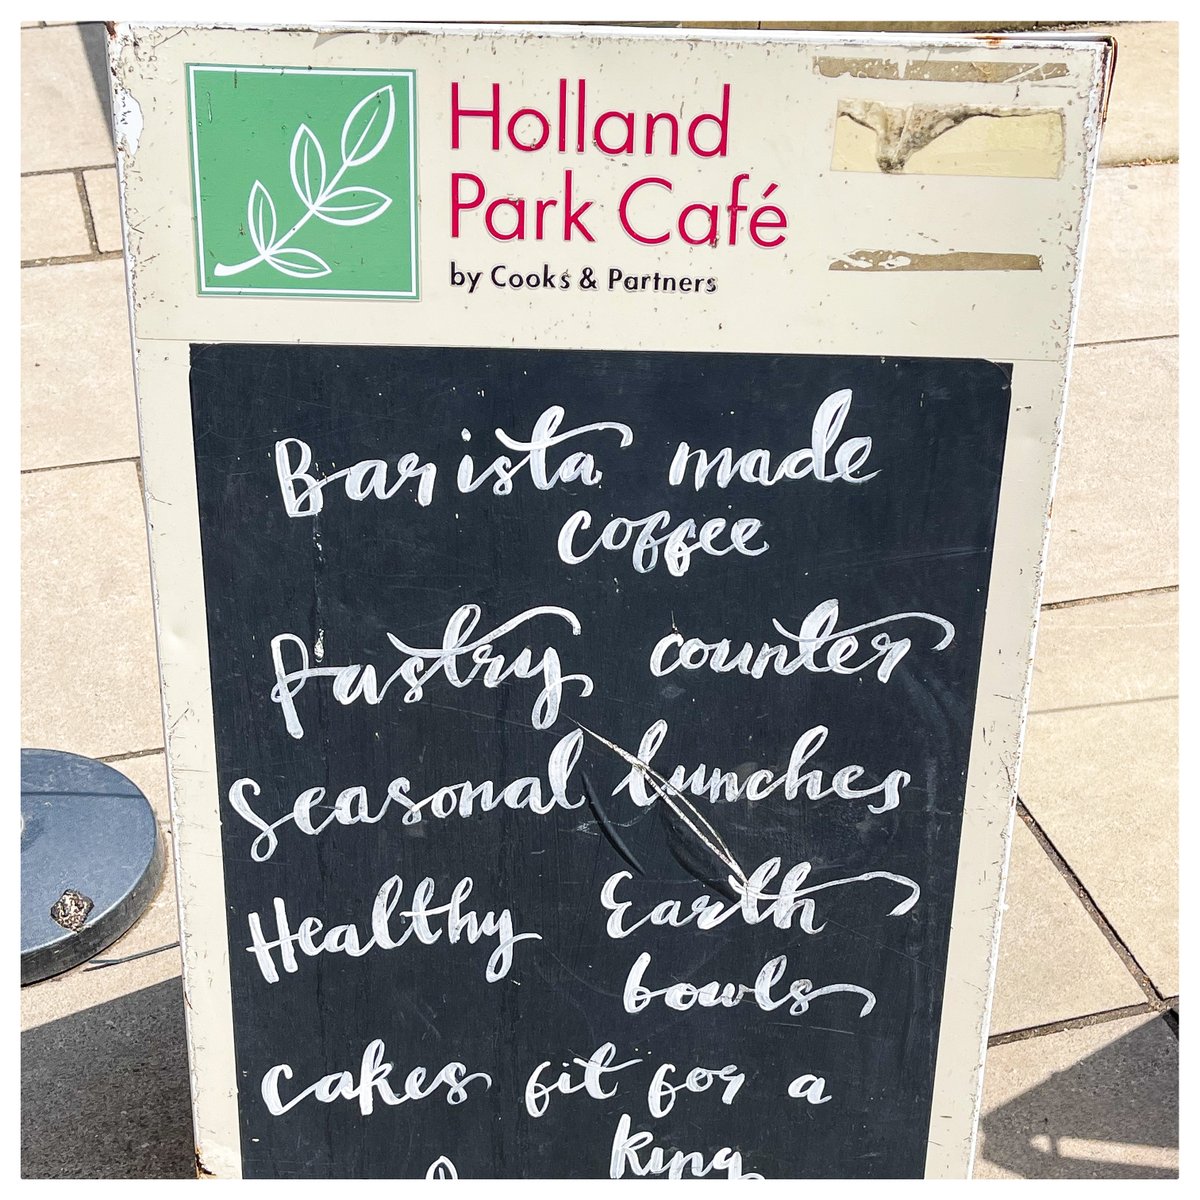 Holland
Park Café
by Cooks & Partners
Barista made
coffee
Pastry counter
Seasonal lunches
Healthy Earth
bowls
Cakes fit for a
King